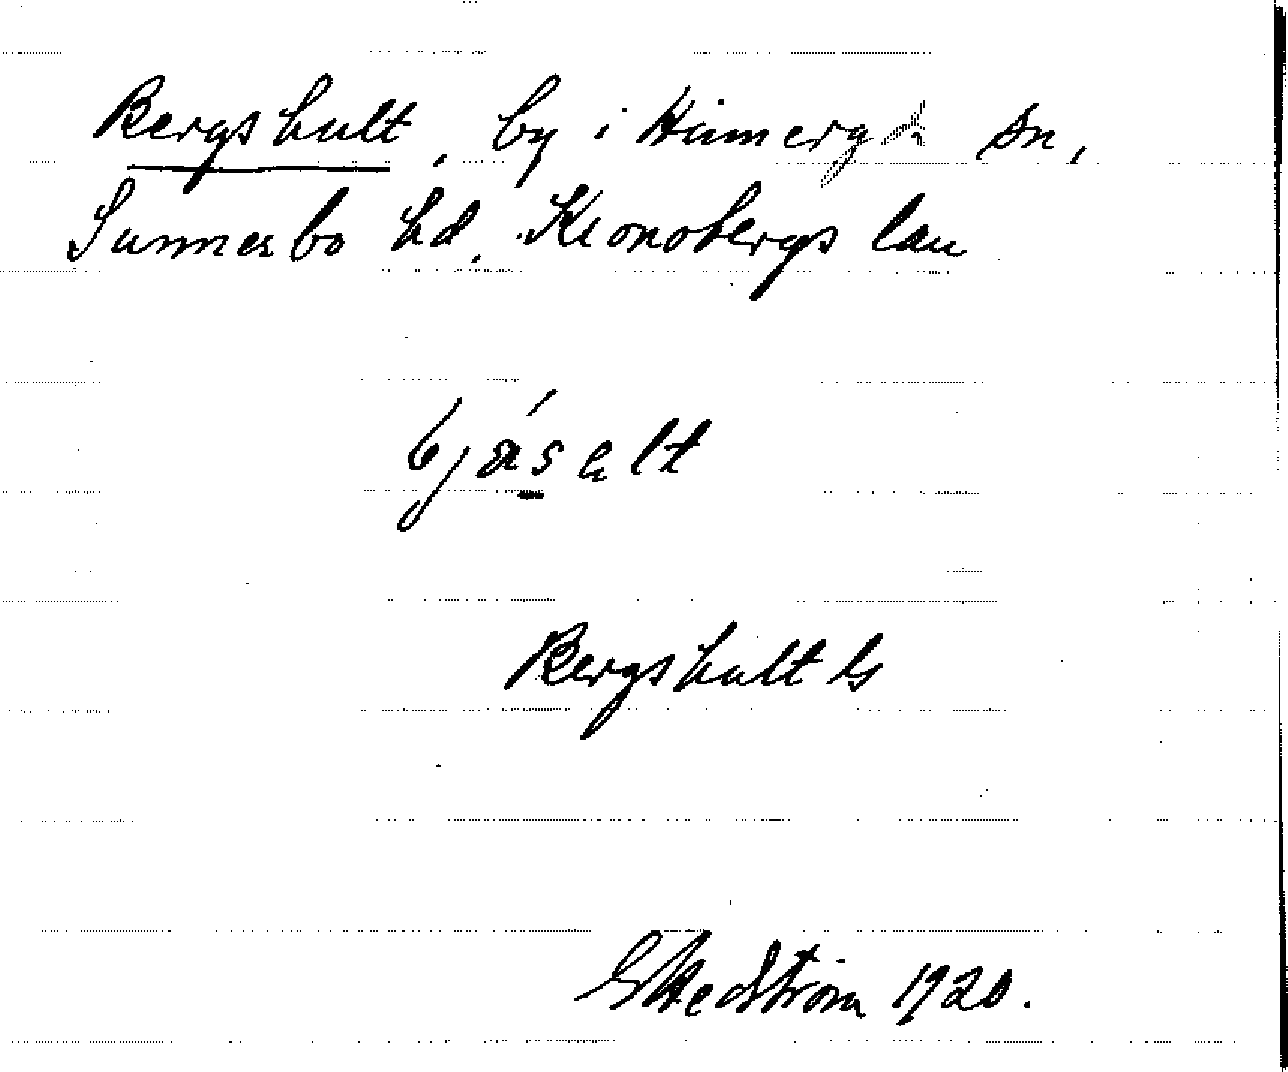 Bergshult, by i Hinneryds sn,
Sunnerbo hd, Kronobergs län
Bergshult
G Hedström 1920.